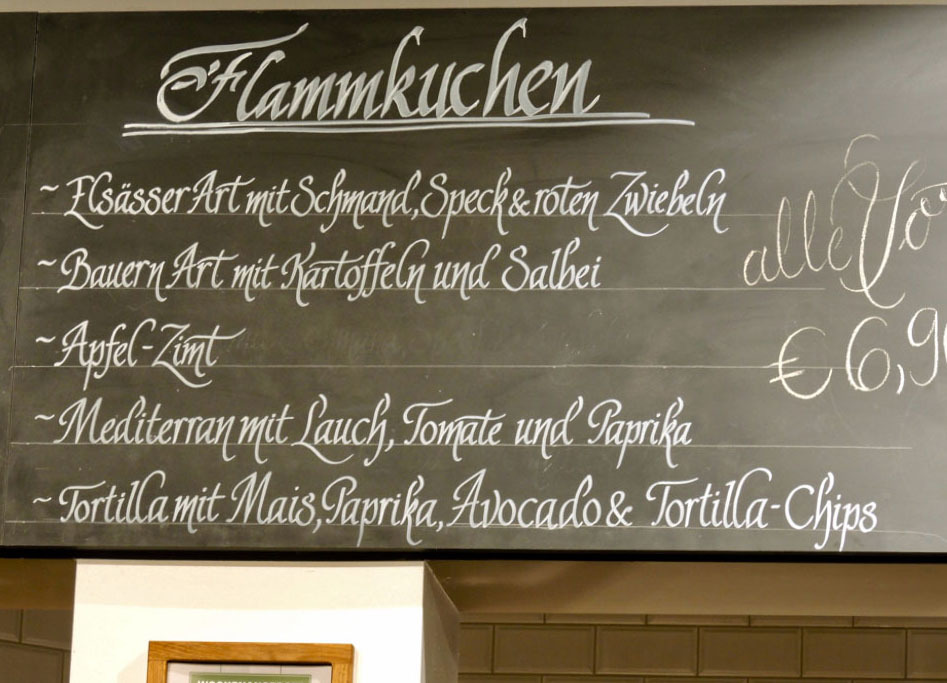 Flammkuchen
~ Elsässer Art mit Schmand, Speck & roten Zwiebeln
~ Bauern Art mit Kartoffeln und Salbei
~ Apfel-Zimt
~ Mediterran mit Lauch, Tomate und Paprika
~ Tortilla mit Mais, Paprika, Avocado & Tortilla-Chips
alle
€ 6,9